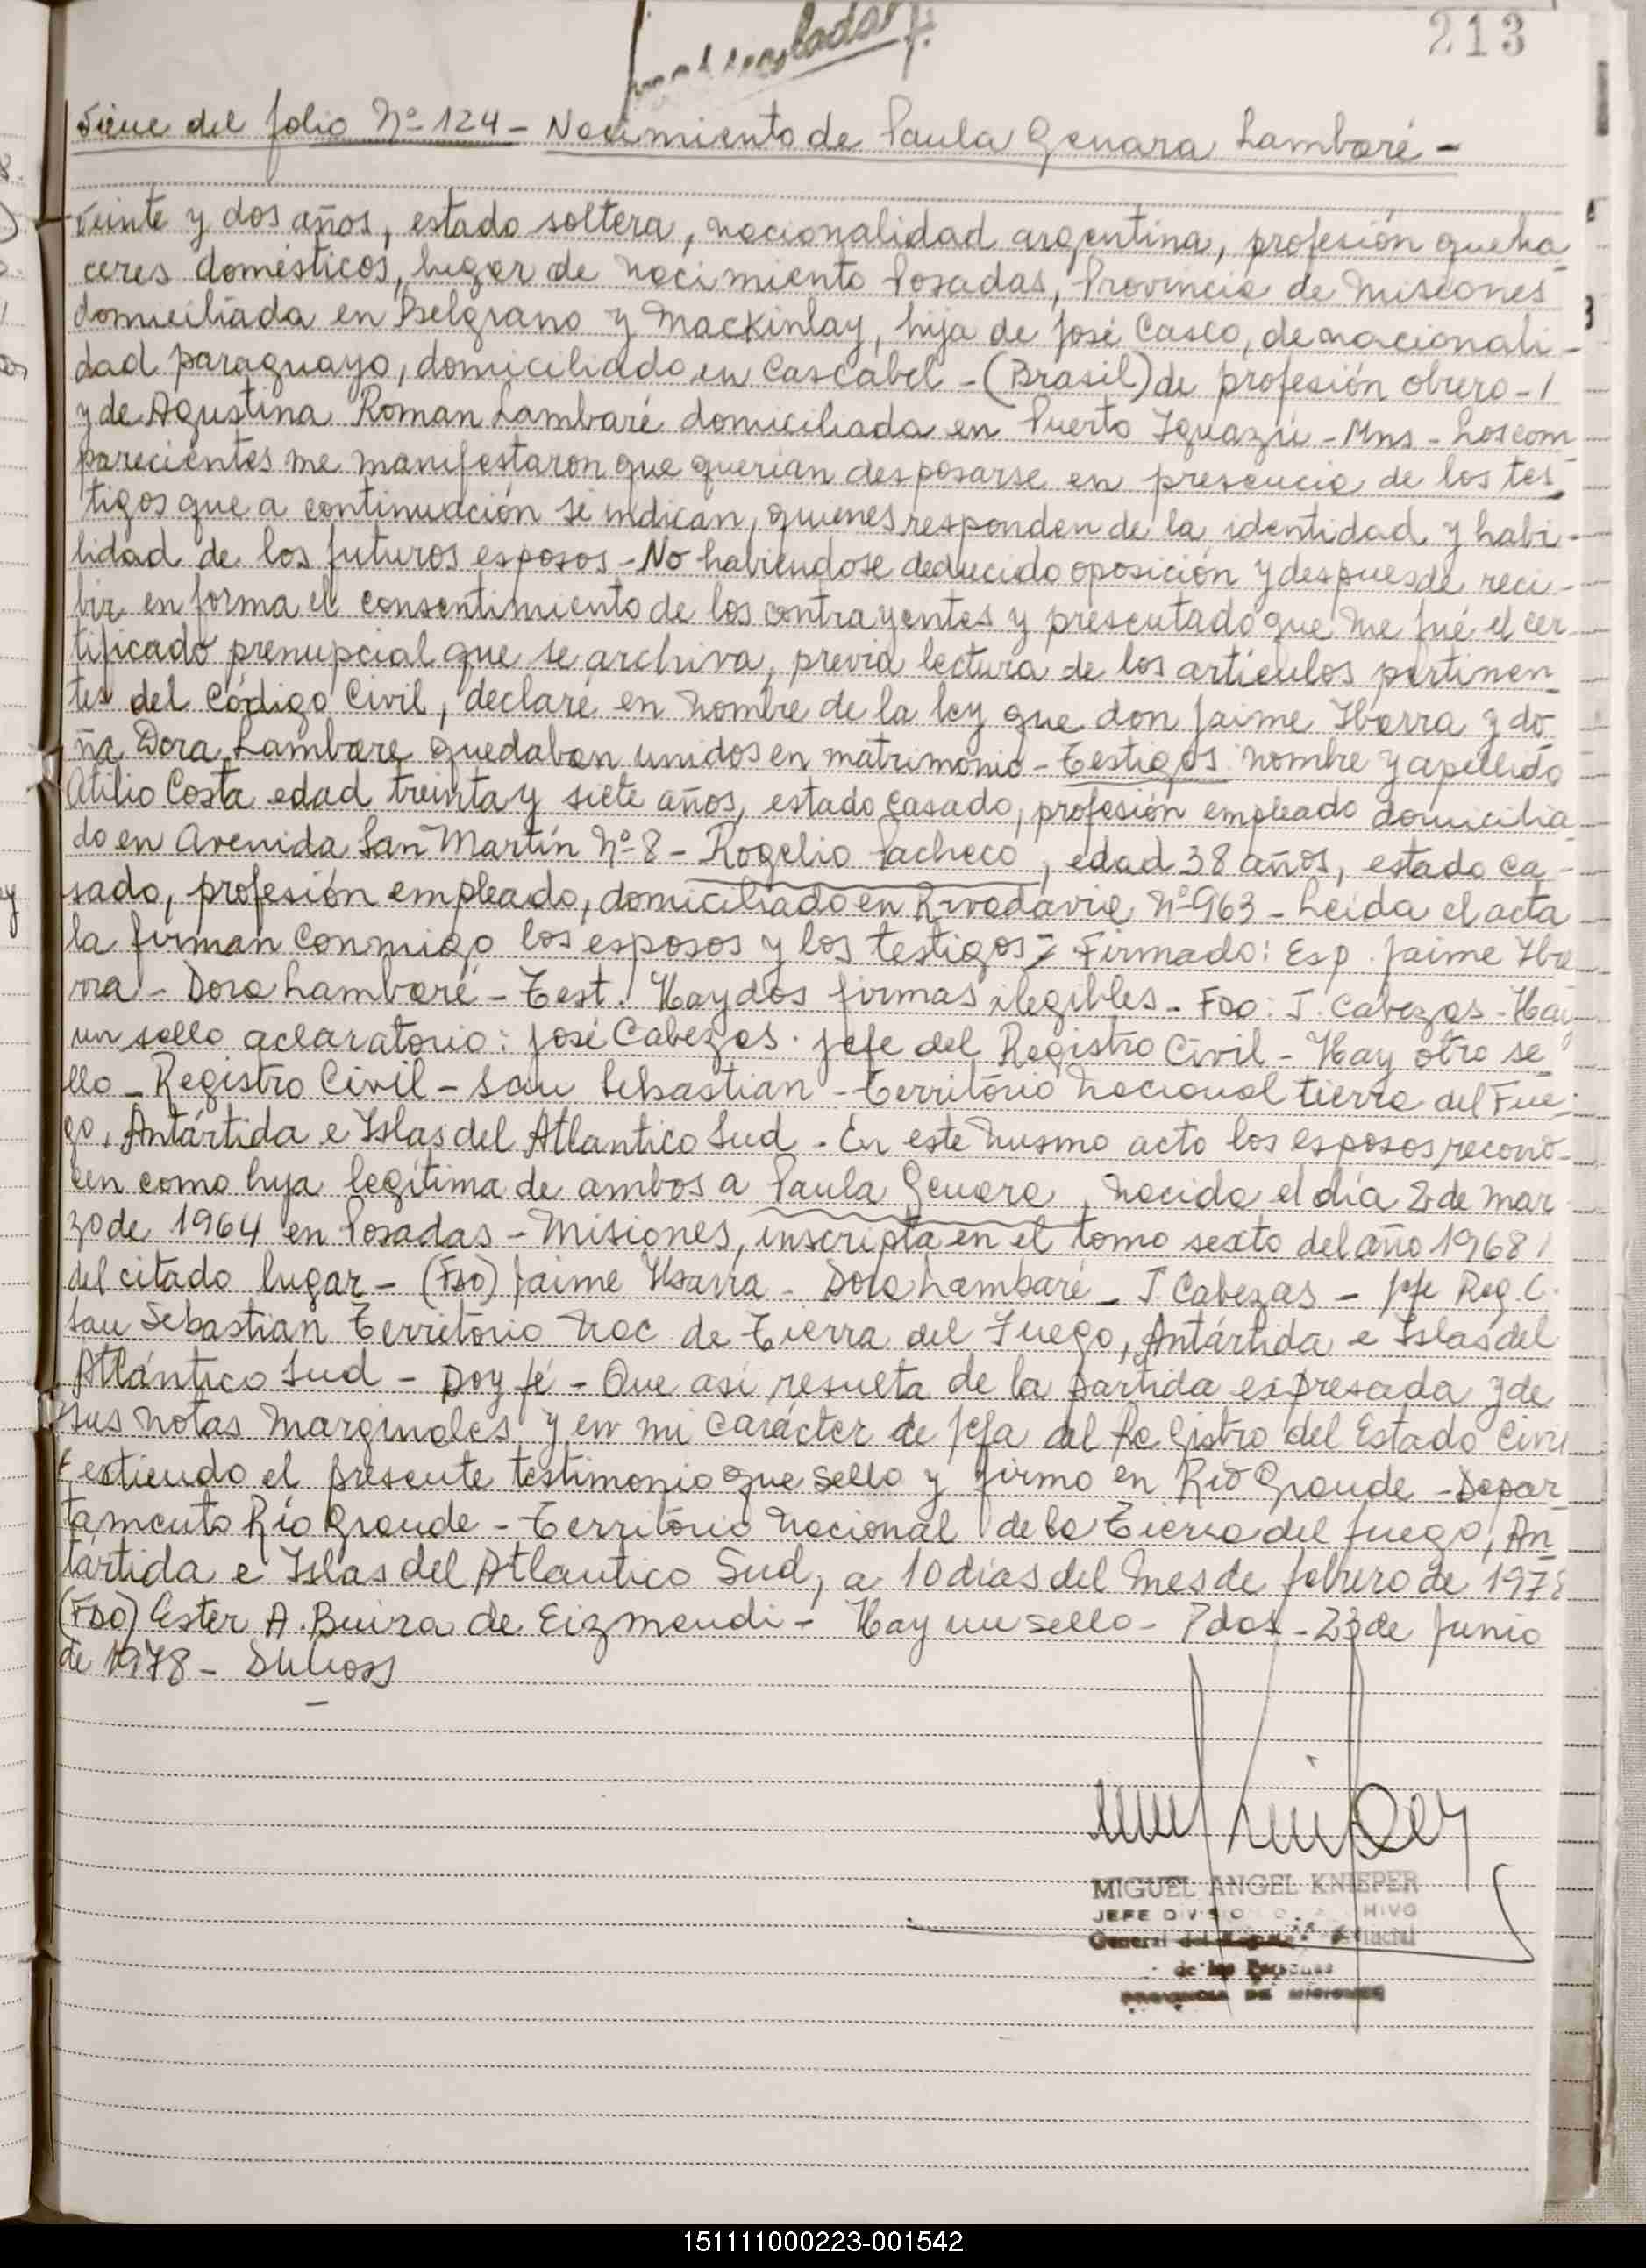 213
Viene del folio Nº 124 - Nacimiento de Paula Genara Lambaré -
veinte y dos años, estado soltera, nacionalidad argentina, profesión queha
ceres domésticos, lugar de nacimiento Posadas, Provincia de Misiones
domiciliada en Belgrano y Mackinlay, hija de José Casco, de nacionali-
dad paraguayo, domiciliado en Cascabel - (Brasil) de profesión obrero - /
y de Agustina Roman Lambaré domiciliada en Puerto Iguazú - Mns - Los com
parecientes me manifestaron que querian desposarse en presencia de los tes
tigos que a continuación se indican, quienes responden de la identidad y habi-
lidad de los futuros esposos - No habiendose deducido oposición y despues de reci-
bir en forma el consentimiento de los contrayentes y presentado que me fué el cer
tificado prenupcial que se archiva, previa lectura de los artículos pertinen
tes del Código Civil, declaré en nombre de la ley que don Jaime Ibarra y do
ña Dora Lambare quedaban unidos en matrimonio - Testigos nombre y apellido
Atilio Costa edad treinta y siete años, estado casado, profesión empleado domicilia
do en Avenida San Martín Nº 8 - Rogelio Pacheco, edad 38 años, estado ca-
sado, profesión empleado, domiciliado en Rivadavia Nº 963 - Leida el acta
la firman conmigo los esposos y los testigos - Firmado: Esp. Jaime Iba
rra - Dora Lambaré - Test. Hay dos firmas ilegibles - Fdo: J. Cabezas - Hay
un sello aclaratorio: José Cabezas. Jefe del Registro Civil - Hay otro se
llo - Registro Civil - San Sebastian - Territorio Nacional tierra del Fue-
go, Antártida e Islas del Atlantico Sud - En este mismo acto los esposos recono-
cen como hija legítima de ambos a Paula Genara, nacida el día 2 de mar
zo de 1964 en Posadas - Misiones, inscripta en el tomo sexto del año 1968 /
del citado lugar - (Fdo) Jaime Ibarra - Dora Lambaré - J. Cabezas - Jefe Reg. C.
San Sebastian Territorio Nac. de Tierra del Fuego, Antártida e Islas del
Atlántico Sud - Doy fé - Que asi resulta de la partida expresada y de
sus notas marginales y en mi carácter de Jefa del Registro del Estado Civil
extiendo el presente testimonio que sello y firmo en Río Grande - Depar
tamento Río Grande - Territorio Nacional de la Tierra del Fuego, An
tártida e Islas del Atlantico Sud, a 10 días del mes de febrero de 1978
(Fdo) Ester A. Buira de Eizmendi - Hay un sello - Pdas - 23 de Junio
de 1978 -
MIGUEL ANGEL KNIEPER
JEFE DIVISION ARCHIVO
General del
de las Personas
PROVINCIA DE MISIONES
151111000223-001542